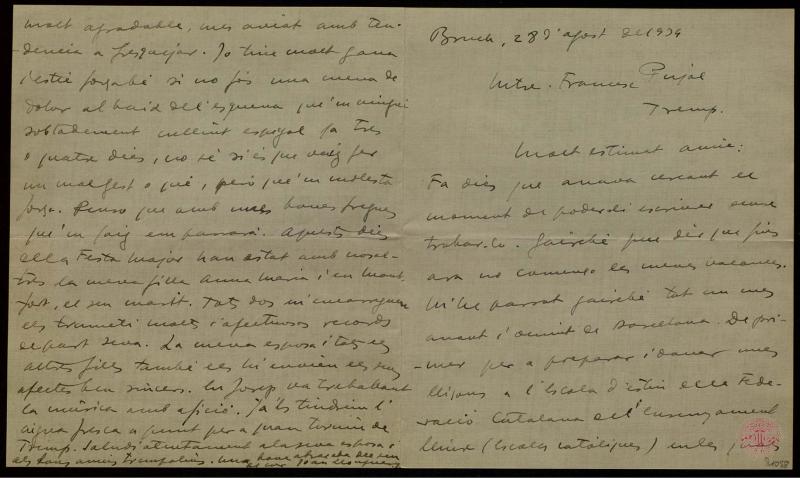 molt agradable, mes aviat amb ten-
dència a fresquejar. Jo tinc molt gana
i estic forçabé si no fos una mena de
dolor al baix de l'esquena que'm vingué
sobtadament cullint espígol fa tres
o quatre dies, no sé si és que vaig fer
un mal gest o què, però que'm molesta
força. Penso que amb unes bones fregues
que'm faig em passarà. Aquests dies
de la Festa Major han estat amb nosal-
tres la meva filla Anna Maria i en Mont-
fort, el seu marit. Tots dos m'encarreguen
els trameti molts i afectuosos records
de part seva. La meva esposa i tots els
altres fills també els hi envien els seus
afectes ben sincers. En Josep va treballant
la música amb afició. Ja'ls tindrem l'
aigua fresca a punt per a quan tornin de
Tremp. Saludi atentament a la seva esposa i
als bons amics trempolins. Una bona abraçada del seu
Joan Llongueras
Bruch, 28 d'agost de 1934
Mtre. Francesc Pujol
Tremp.
Molt estimat amic:
Fa dies que anava cercant el
moment de poder-li escriure sense
trobar-lo. Gairebé puc dir que fins
ara no començo les meves vacances.
M'he passat gairebé tot un mes
anant i venint de Barcelona. De pri-
mer per a preparar i donar unes
lliçons a l'Escola d'estiu de la Fede-
ració Catalana de l'Ensenyament
lliure (Escoles catòliques) en les quals